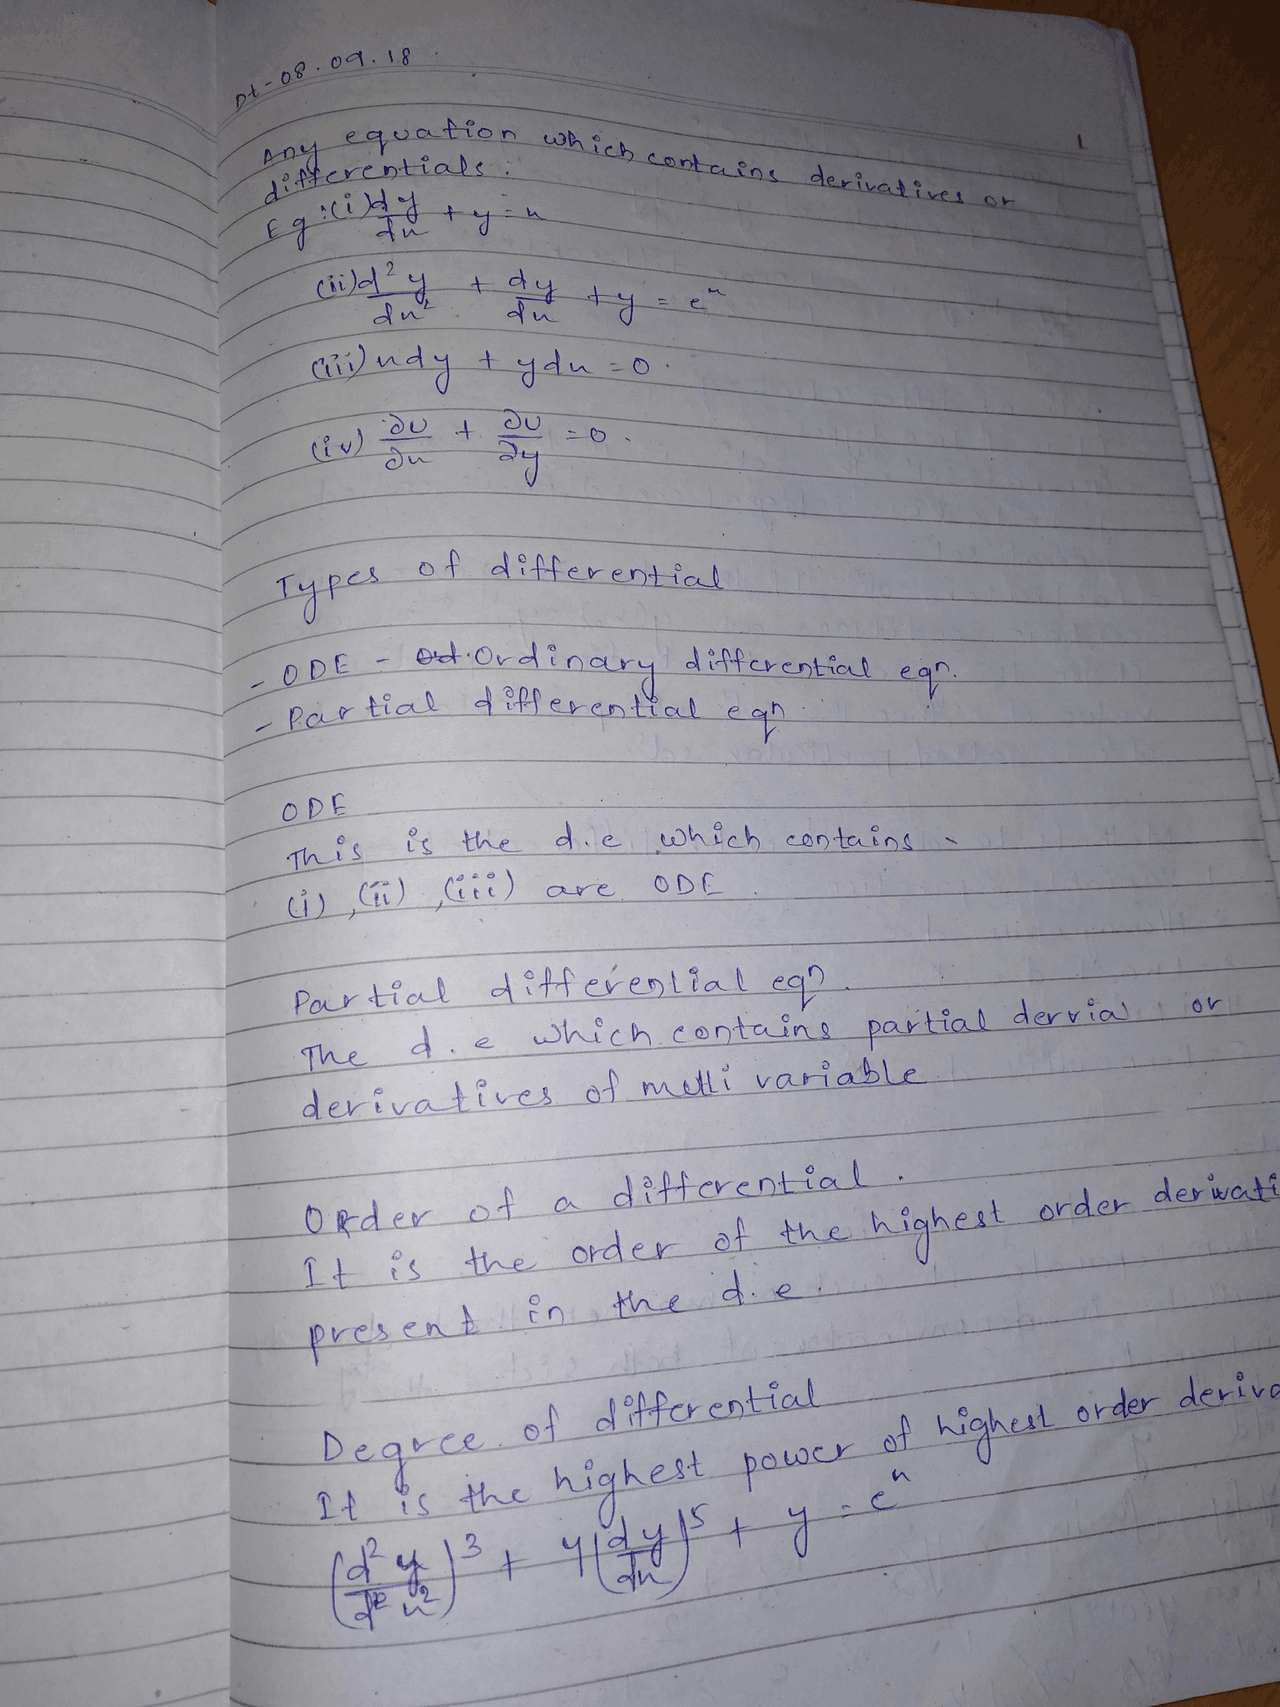 Dt - 08.09.18.
1
Any equation which contains derivatives or
differentials.
Eg:(i) dy/dx + y = x
(ii) d²y/dx² + dy/dx + y = eˣ
(iii) xdy + ydx = 0.
(iv) ∂u/∂x + ∂u/∂y = 0.
Types of differential
- ODE - Ordinary differential eqn.
- Partial differential eqn.
ODE
This is the d.e which contains
(i), (ii), (iii) are ODE.
Partial differential eqn.
The d.e which contains partial derria or
derivatives of multi variable
Order of a differential.
It is the order of the highest order derivati
present in the d.e.
Degree of differential
It is the highest power of highest order deriva
(d²y/dx²)³ + 4(dy/dx)⁵ + y = eˣ